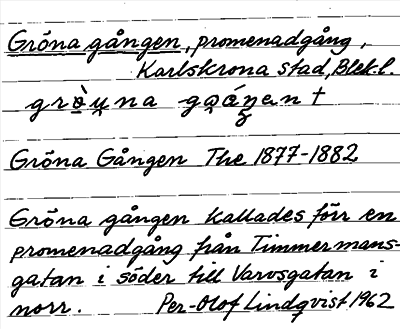 Gröna gången, promenadgång,
Karlskrona stad, Blek.l.
Gröna Gången The 1877-1882
Gröna gången kallades förr en
promenadgång från Timmermans-
gatan i söder till Varvsgatan i
norr. Per-Olof Lindqvist 1962